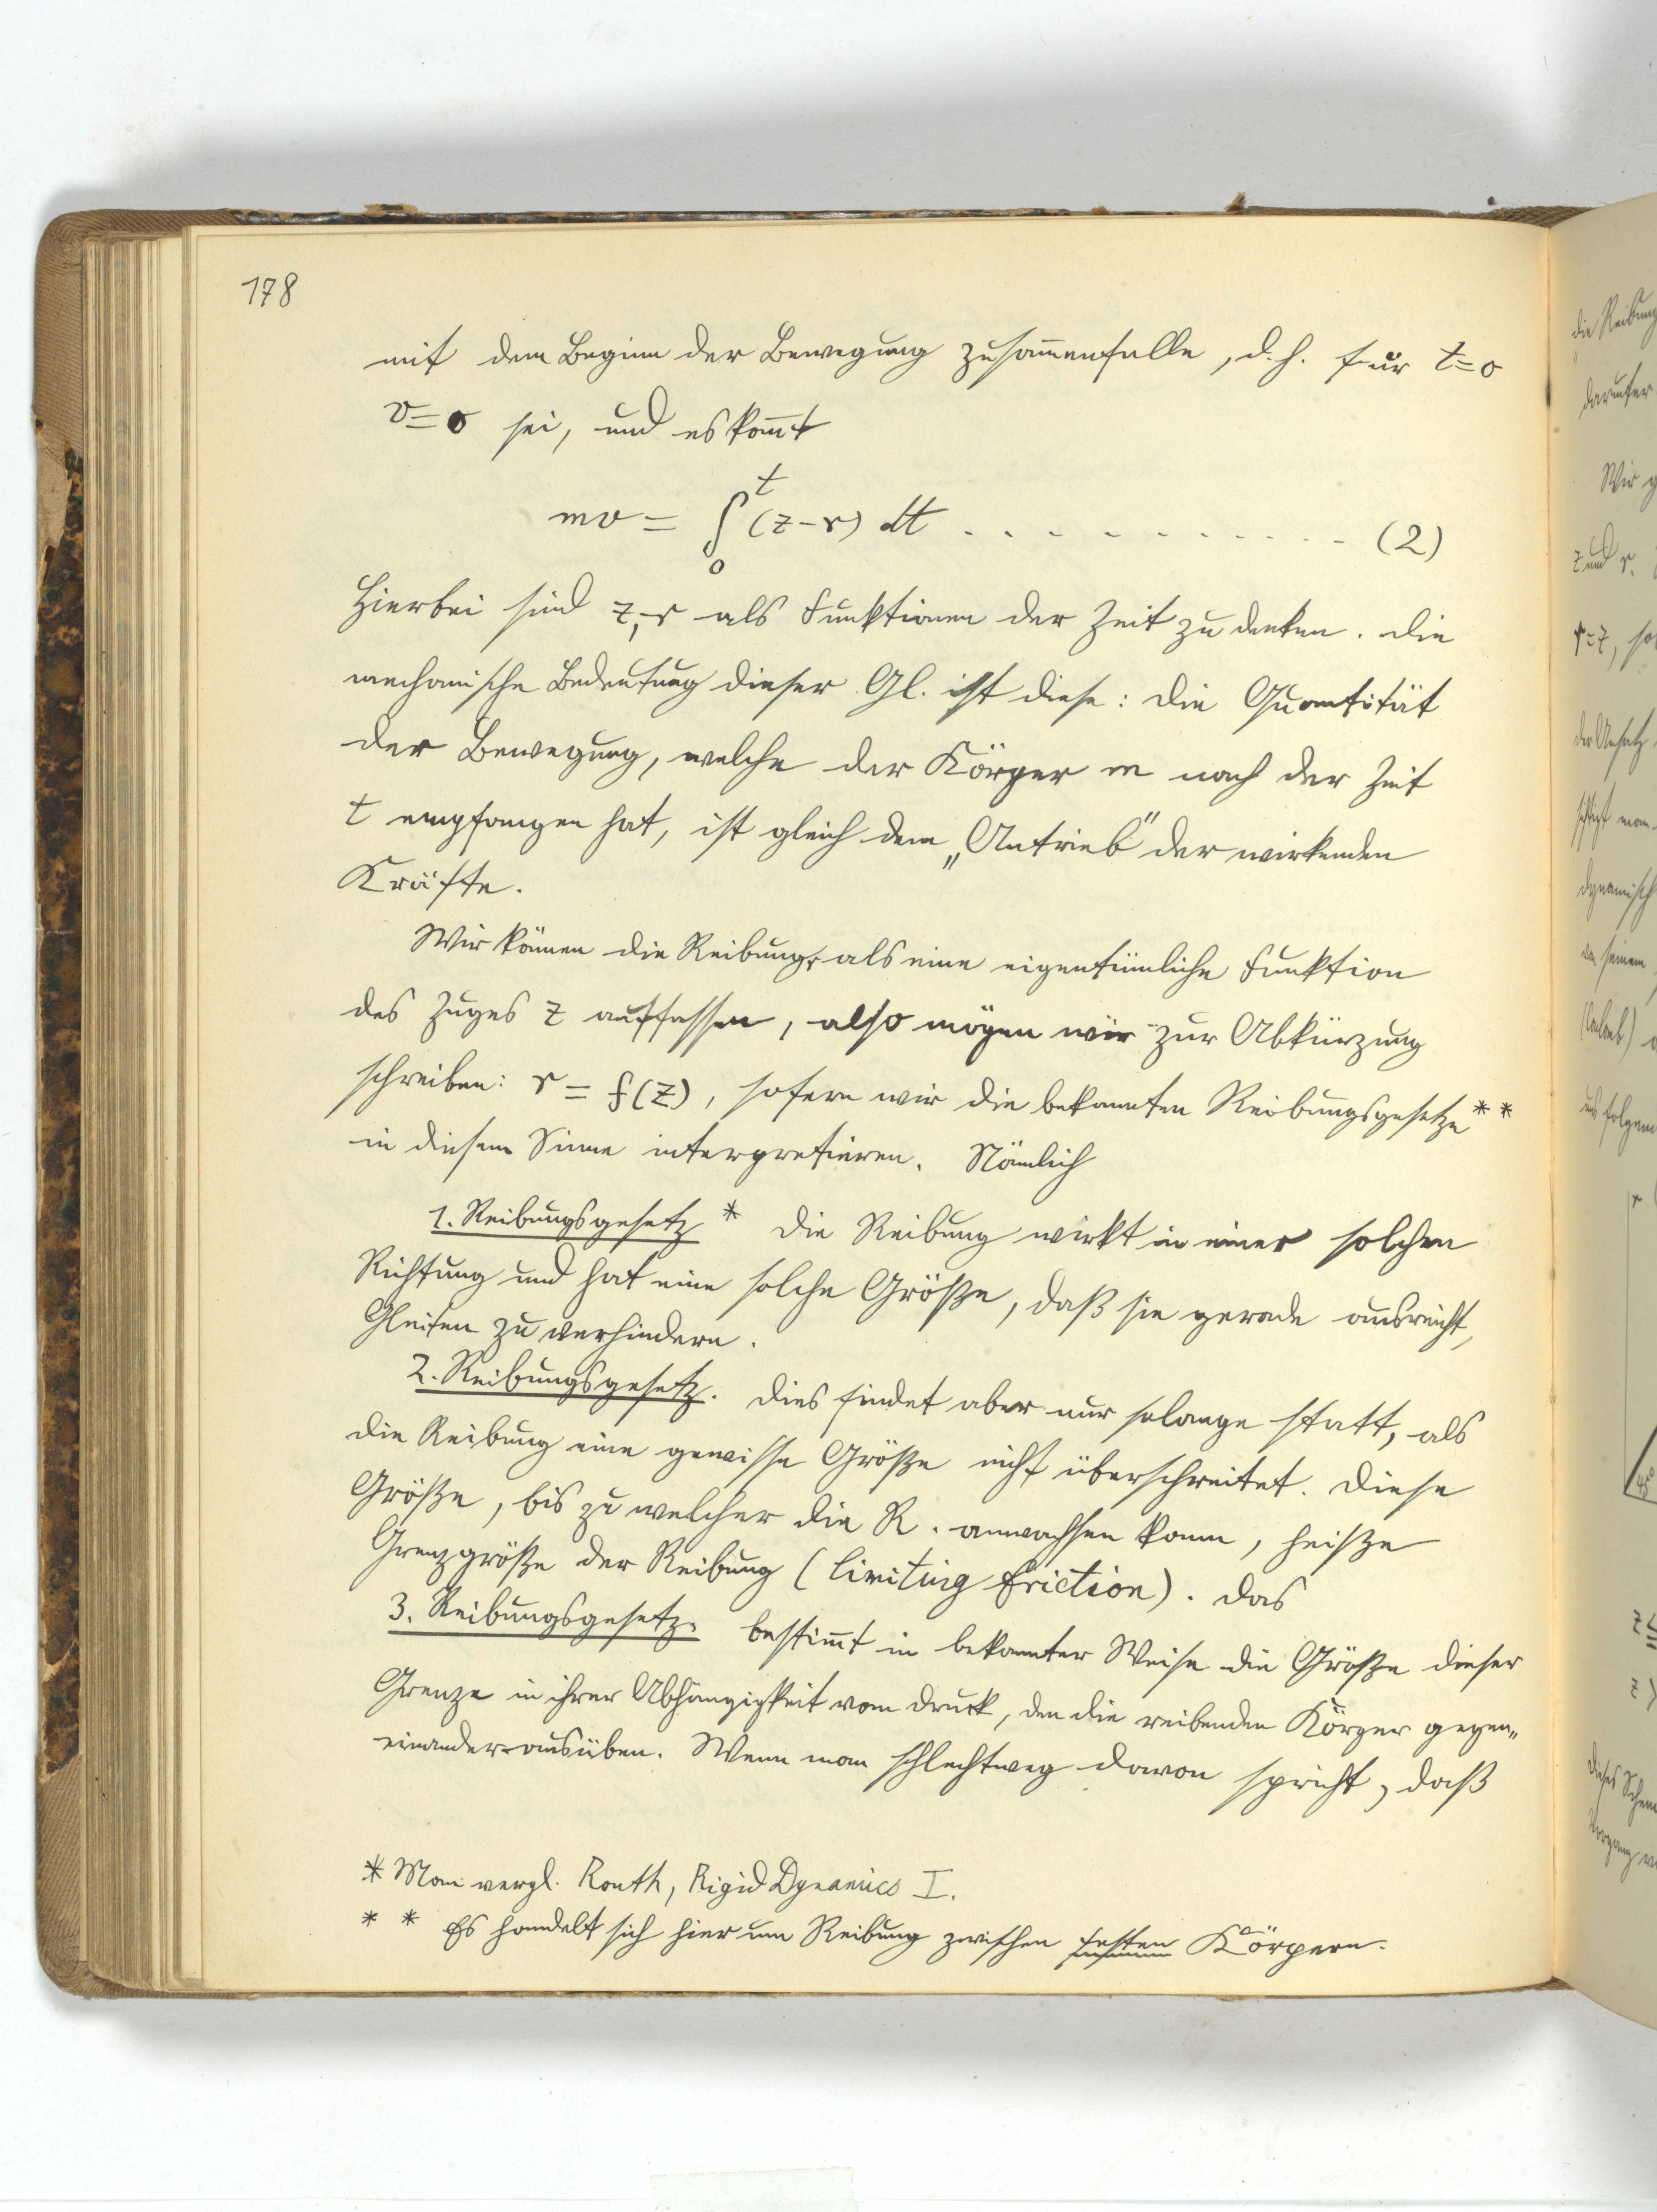 178
mit dem Beginn der Bewegung zusam̄enfalle, d. h. für t=0
v=0 sei, und es kom̄t
mv = ∫₀ᵗ (z-r) dt . . . . . . . . . . . (2)
Hierbei sind z, r als Funktionen der Zeit zu denken. Die
mechanische Bedeutung dieser Gl. ist diese: die Quantität
der Bewegung, welche der Körper m nach der Zeit
t empfangen hat, ist gleich dem „Antrieb" der wirkenden
Kräfte.
Wir können die Reibung r als eine eigentümliche Funktion
des Zuges z auffassen, also mögen wir zur Abkürzung
schreiben: r = f(z), sofern wir die bekannten Reibungsgesetze * *
in diesem Sinne interpretieren. Nämlich
1. Reibungsgesetz * Die Reibung wirkt in einer solchen
Richtung und hat eine solche Größe, daß sie gerade ausreicht,
Gleiten zu verhindern.
2. Reibungsgesetz. Dies findet aber nur solange statt, als
die Reibung eine gewisse Größe nicht überschreitet. Diese
Größe, bis zu welcher die R. anwachsen kann, heiße
Grenzgröße der Reibung (limiting friction). Das
3. Reibungsgesetz. bestim̄t in bekannter Weise die Größe dieser
Grenze in ihrer Abhängigkeit vom Druck, den die reibenden Körper gegen„
einander ausüben. Wenn man schlechtweg davon spricht, daß
* Man vergl. Routh, Rigid Dynamics I.
* * Es handelt sich hier um Reibung zwischen festen Körpern.
die Reibung
darunter
Wir
z und r.
r=z, so
der Ansatz
man
dynamisch
seinem
45°
z ≤
z >
dieses Schema
Vorgang